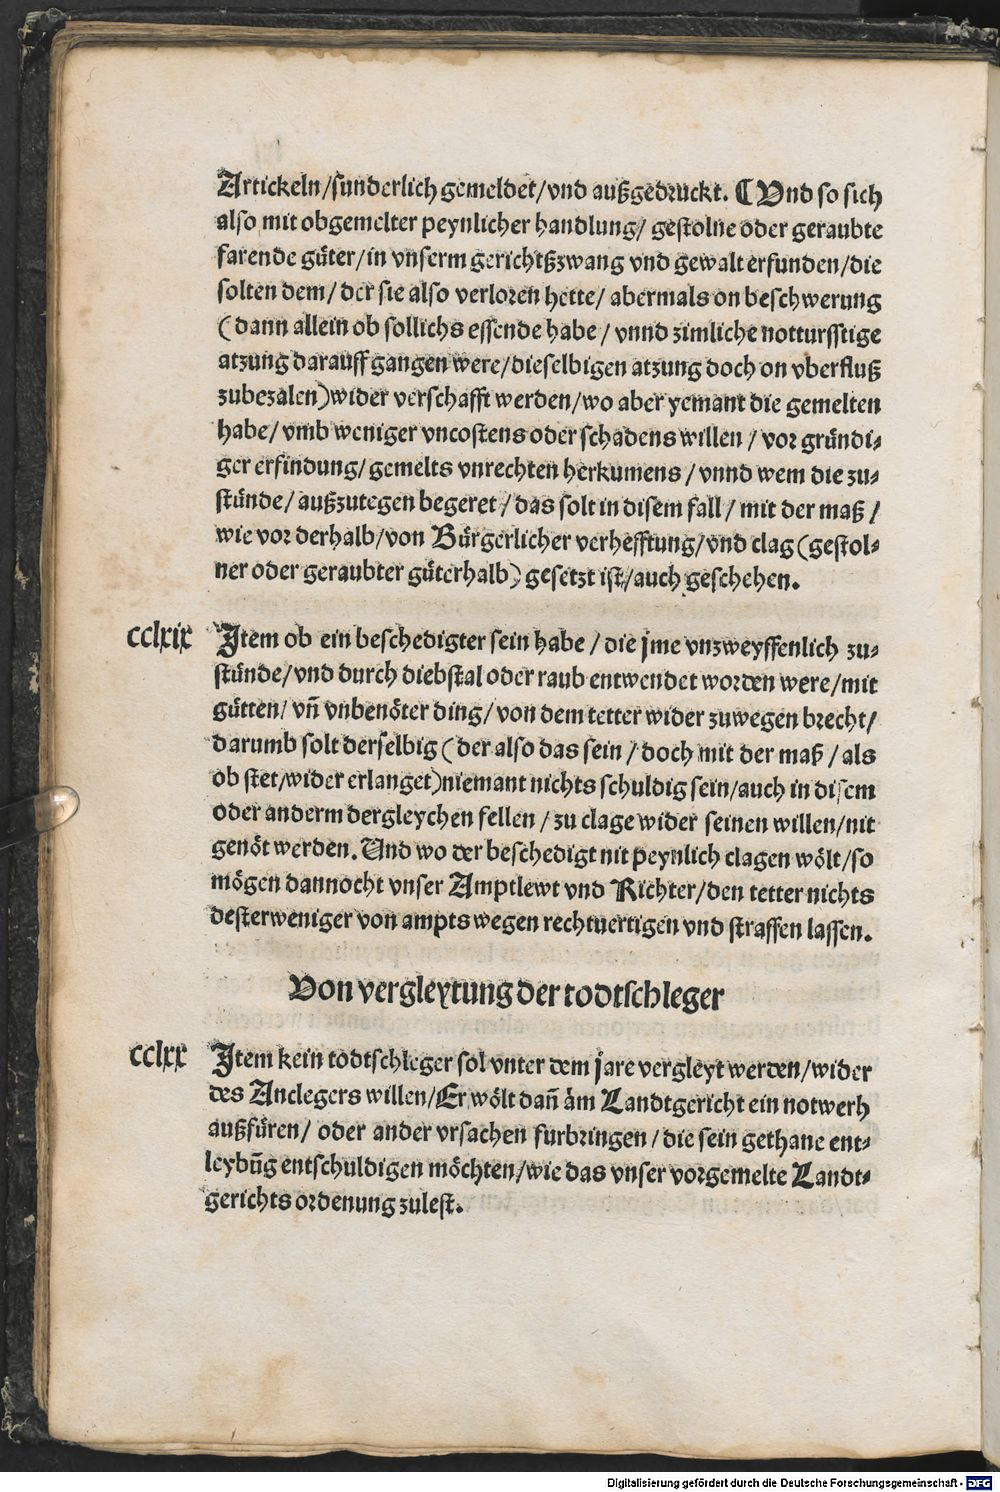 Artickeln/sunderlich gemeldet/vnd außgedruckt. ⸿ Vnd so sich
also mit obgemelter peynlicher handlung/ gestolne oder geraubte
farende güter/in vnserm gerichtßzwang vnd gewalt erfunden/die
solten dem/ der sie also verloren hette/ abermals on beschwerung
(dann allein ob sollichs essende habe/ vnnd zimliche notturfftige
atzung darauff gangen were/dieselbigen atzung doch on vberfluß
zubezalen)wider verschafft werden/wo aber yemant die gemelten
habe/ vmb weniger vncostens oder schadens willen/ vor gründi⸗
ger erfindung/gemelts vnrechten herkumens/ vnnd wem die zu⸗
stünde/ außzutegen begeret/ das solt in disem fall/ mit der maß/
wie vor derhalb/von Bürgerlicher verhefftung/vnd clag(gestol⸗
ner oder geraubter güterhalb) gesetzt ist/auch geschehen.
cclxix Jtem ob ein beschedigter sein habe/ die jme vnzweyffenlich zu⸗
stünde/vnd durch diebstal oder raub entwendet worden were/mit
gütten/ vn̄ vnbenöter ding/ von dem tetter wider zuwegen brecht/
darumb solt derselbig (der also das sein/ doch mit der maß/ als
ob stet/wider erlanget)niemant nichts schuldig sein/auch in disem
oder anderm dergleychen fellen/ zu clage wider seinen willen/nit
genöt werden. Und wo der beschedigt nit peynlich clagen wölt/so
mögen dannocht vnser Amptlewt vnd Richter/den tetter nichts
desterweniger von ampts wegen rechtuertigen vnd straffen lassen.
Von vergleytung der todtschleger
cclxx Jtem kein todtschleger sol vnter dem jare vergleyt werden/wider
des Anclegers willen/Er wölt dan̄ am Landtgericht ein notwerh
außfüren/ oder ander vrsachen furbringen/ die sein gethane ent⸗
leybūg entschuldigen möchten/wie das vnser vorgemelte Landt⸗
gerichts ordenung zulest.
Digitalisierung gefördert durch die Deutsche Forschungsgemeinschaft - DFG